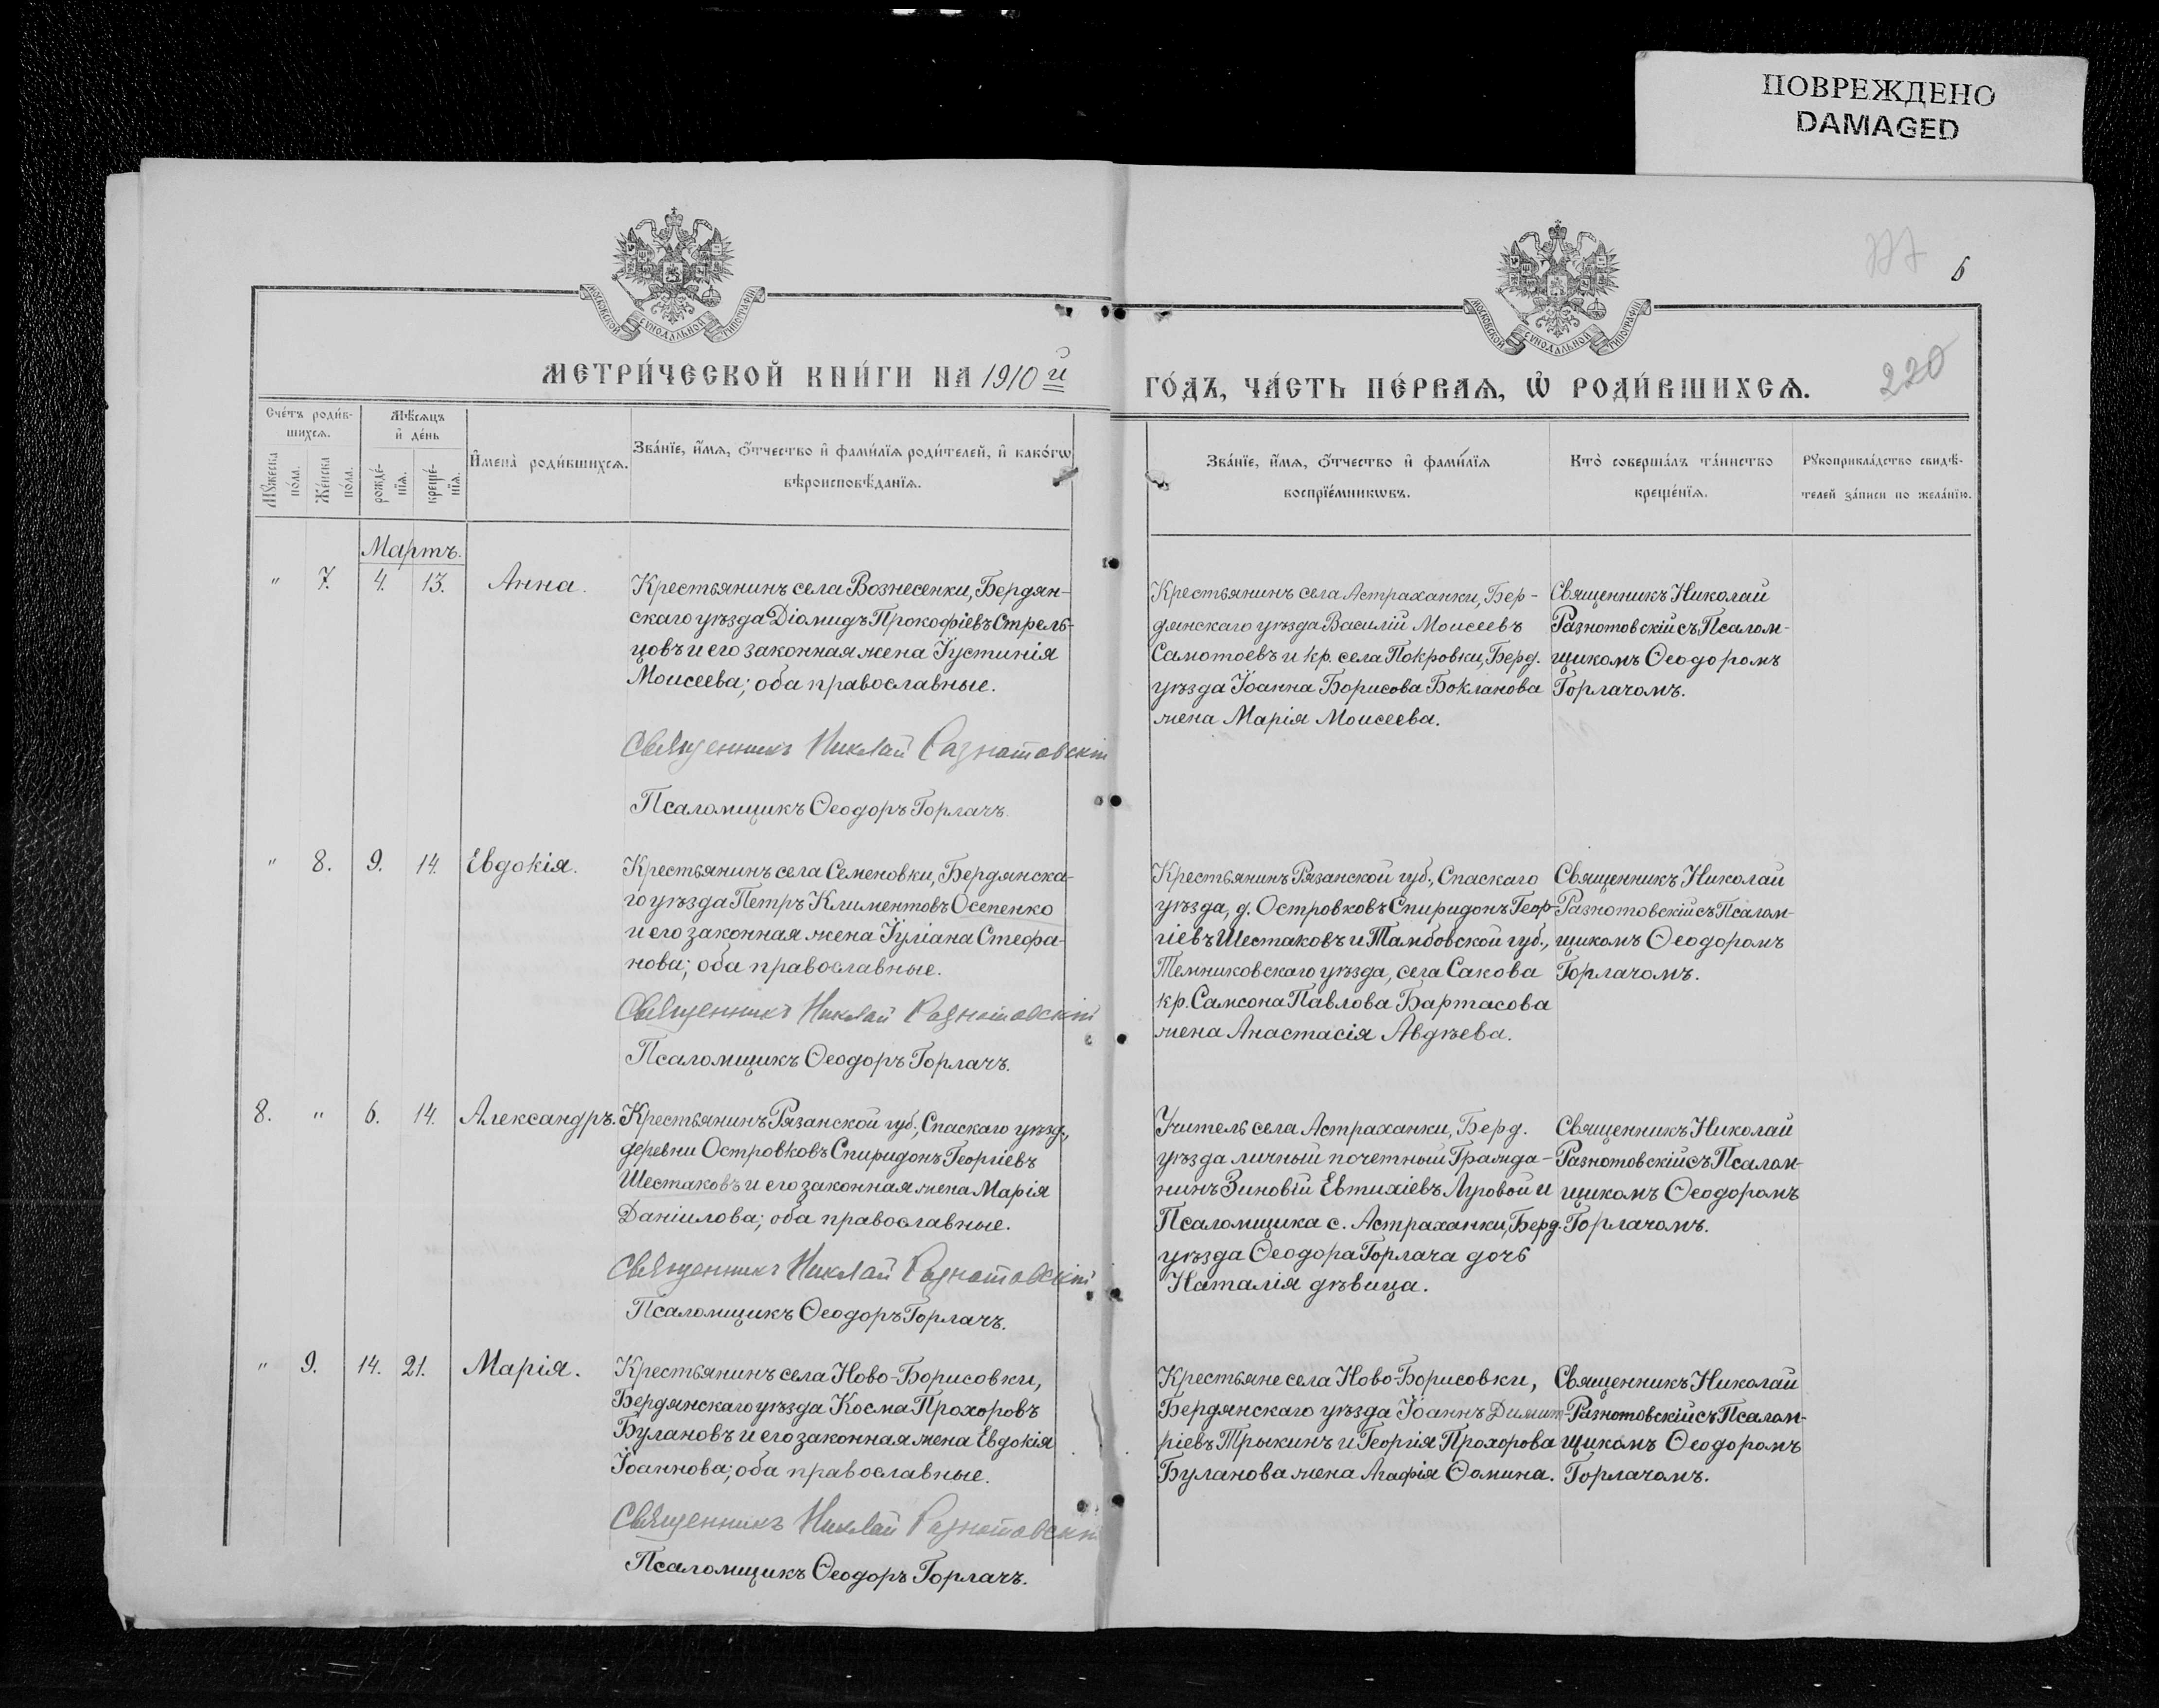 ПОВРЕЖДЕНО
DAMAGED
6
220
МОСКОВСКОЙ СѴНОДАЛЬНОЙ ТИПОГРАФІИ
МОСКОВСКОЙ СѴНОДАЛЬНОЙ ТИПОГРАФІИ
МЕТРИ́ЧЕСКОЙ КНИ́ГИ НА 1910й
ГО́ДЪ, ЧА́СТЬ ПЕ́РВАѦ, Ѡ҆ РОДИ́ВШИХСѦ.
Сче́тъ роди́в-
шихсѧ.
Мѣ́сѧцъ
и҆ де́нь
Мꙋ́жеска
по́ла.
Же́нска
по́ла.
рожде́-
нїѧ.
креще́-
нїѧ.
И҆мена̀ роди́вшихсѧ.
Зва́нїе, и҆́мѧ, ѻ҆́тчество и҆ фами́лїѧ роди́телей, и҆ како́гѡ
вѣроисповѣ́данїѧ.
Зва́нїе, и҆́мѧ, ѻ҆́тчество и҆ фами́лїѧ
воспрїе́мникѡвъ.
Кто̀ соверша́лъ та́инство
креще́нїѧ.
Рꙋкоприкла́дство свидѣ́-
телей за́писи по жела́нїю.
Мартъ.
" 7. 4. 13. Анна.
Крестьянинъ села Вознесенки, Бердян-
скаго уѣзда Діомидъ Прокофіевъ Стрель-
цовъ и его законная жена Іустинія
Моисеева; оба православные.
Священникъ Николай Разнотовскій
Псаломщикъ Ѳеодоръ Горлачъ.
Крестьянинъ села Астраханки, Бер-
дянскаго уѣзда Василій Моисеевъ
Самотоевъ и кр. села Покровки, Берд.
уѣзда Іоанна Борисова Бокланова
жена Марія Моисеева.
Священникъ Николай
Разнотовскій съ Псалом-
щикомъ Ѳеодоромъ
Горлачомъ.
" 8. 9. 14. Евдокія.
Крестьянинъ села Семеновки, Бердянска-
го уѣзда Петръ Климентовъ Осепенко
и его законная жена Іуліана Стефа-
нова; оба православные.
Священникъ Николай Разнотовскій
Псаломщикъ Ѳеодоръ Горлачъ.
Крестьянинъ Рязанской губ., Спаскаго
уѣзда, д. Островковъ Спиридонъ Геор-
гіевъ Шестаковъ и Тамбовской губ.,
Темниковскаго уѣзда, села Сакова
кр. Самсона Павлова Бартасова
жена Анастасія Авдѣева.
Священникъ Николай
Разнотовскій съ Псалом-
щикомъ Ѳеодоромъ
Горлачомъ.
8. " 6. 14. Александръ.
Крестьянинъ Рязанской губ., Спаскаго уѣзд.,
деревни Островковъ Спиридонъ Георгіевъ
Шестаковъ и его законная жена Марія
Даніилова; оба православные.
Священникъ Николай Разнотовскій
Псаломщикъ Ѳеодоръ Горлачъ.
Учитель села Астраханки, Берд.
уѣзда личный почетный Гражда-
нинъ Зиновій Евтихіевъ Луговой и
Псаломщика с. Астраханки, Берд.
уѣзда Ѳеодора Горлача дочь
Наталія дѣвица.
Священникъ Николай
Разнотовскій съ Псалом-
щикомъ Ѳеодоромъ
Горлачомъ.
" 9. 14. 21. Марія.
Крестьянинъ села Ново-Борисовки,
Бердянскаго уѣзда Косма Прохоровъ
Булановъ и его законная жена Евдокія
Іоаннова; оба православные.
Священникъ Николай Разнотовскій
Псаломщикъ Ѳеодоръ Горлачъ.
Крестьяне села Ново-Борисовки,
Бердянскаго уѣзда Іоаннъ Димит-
ріевъ Трыкинъ и Георгія Прохорова
Буланова жена Агафія Ѳомина.
Священникъ Николай
Разнотовскій съ Псалом-
щикомъ Ѳеодоромъ
Горлачомъ.